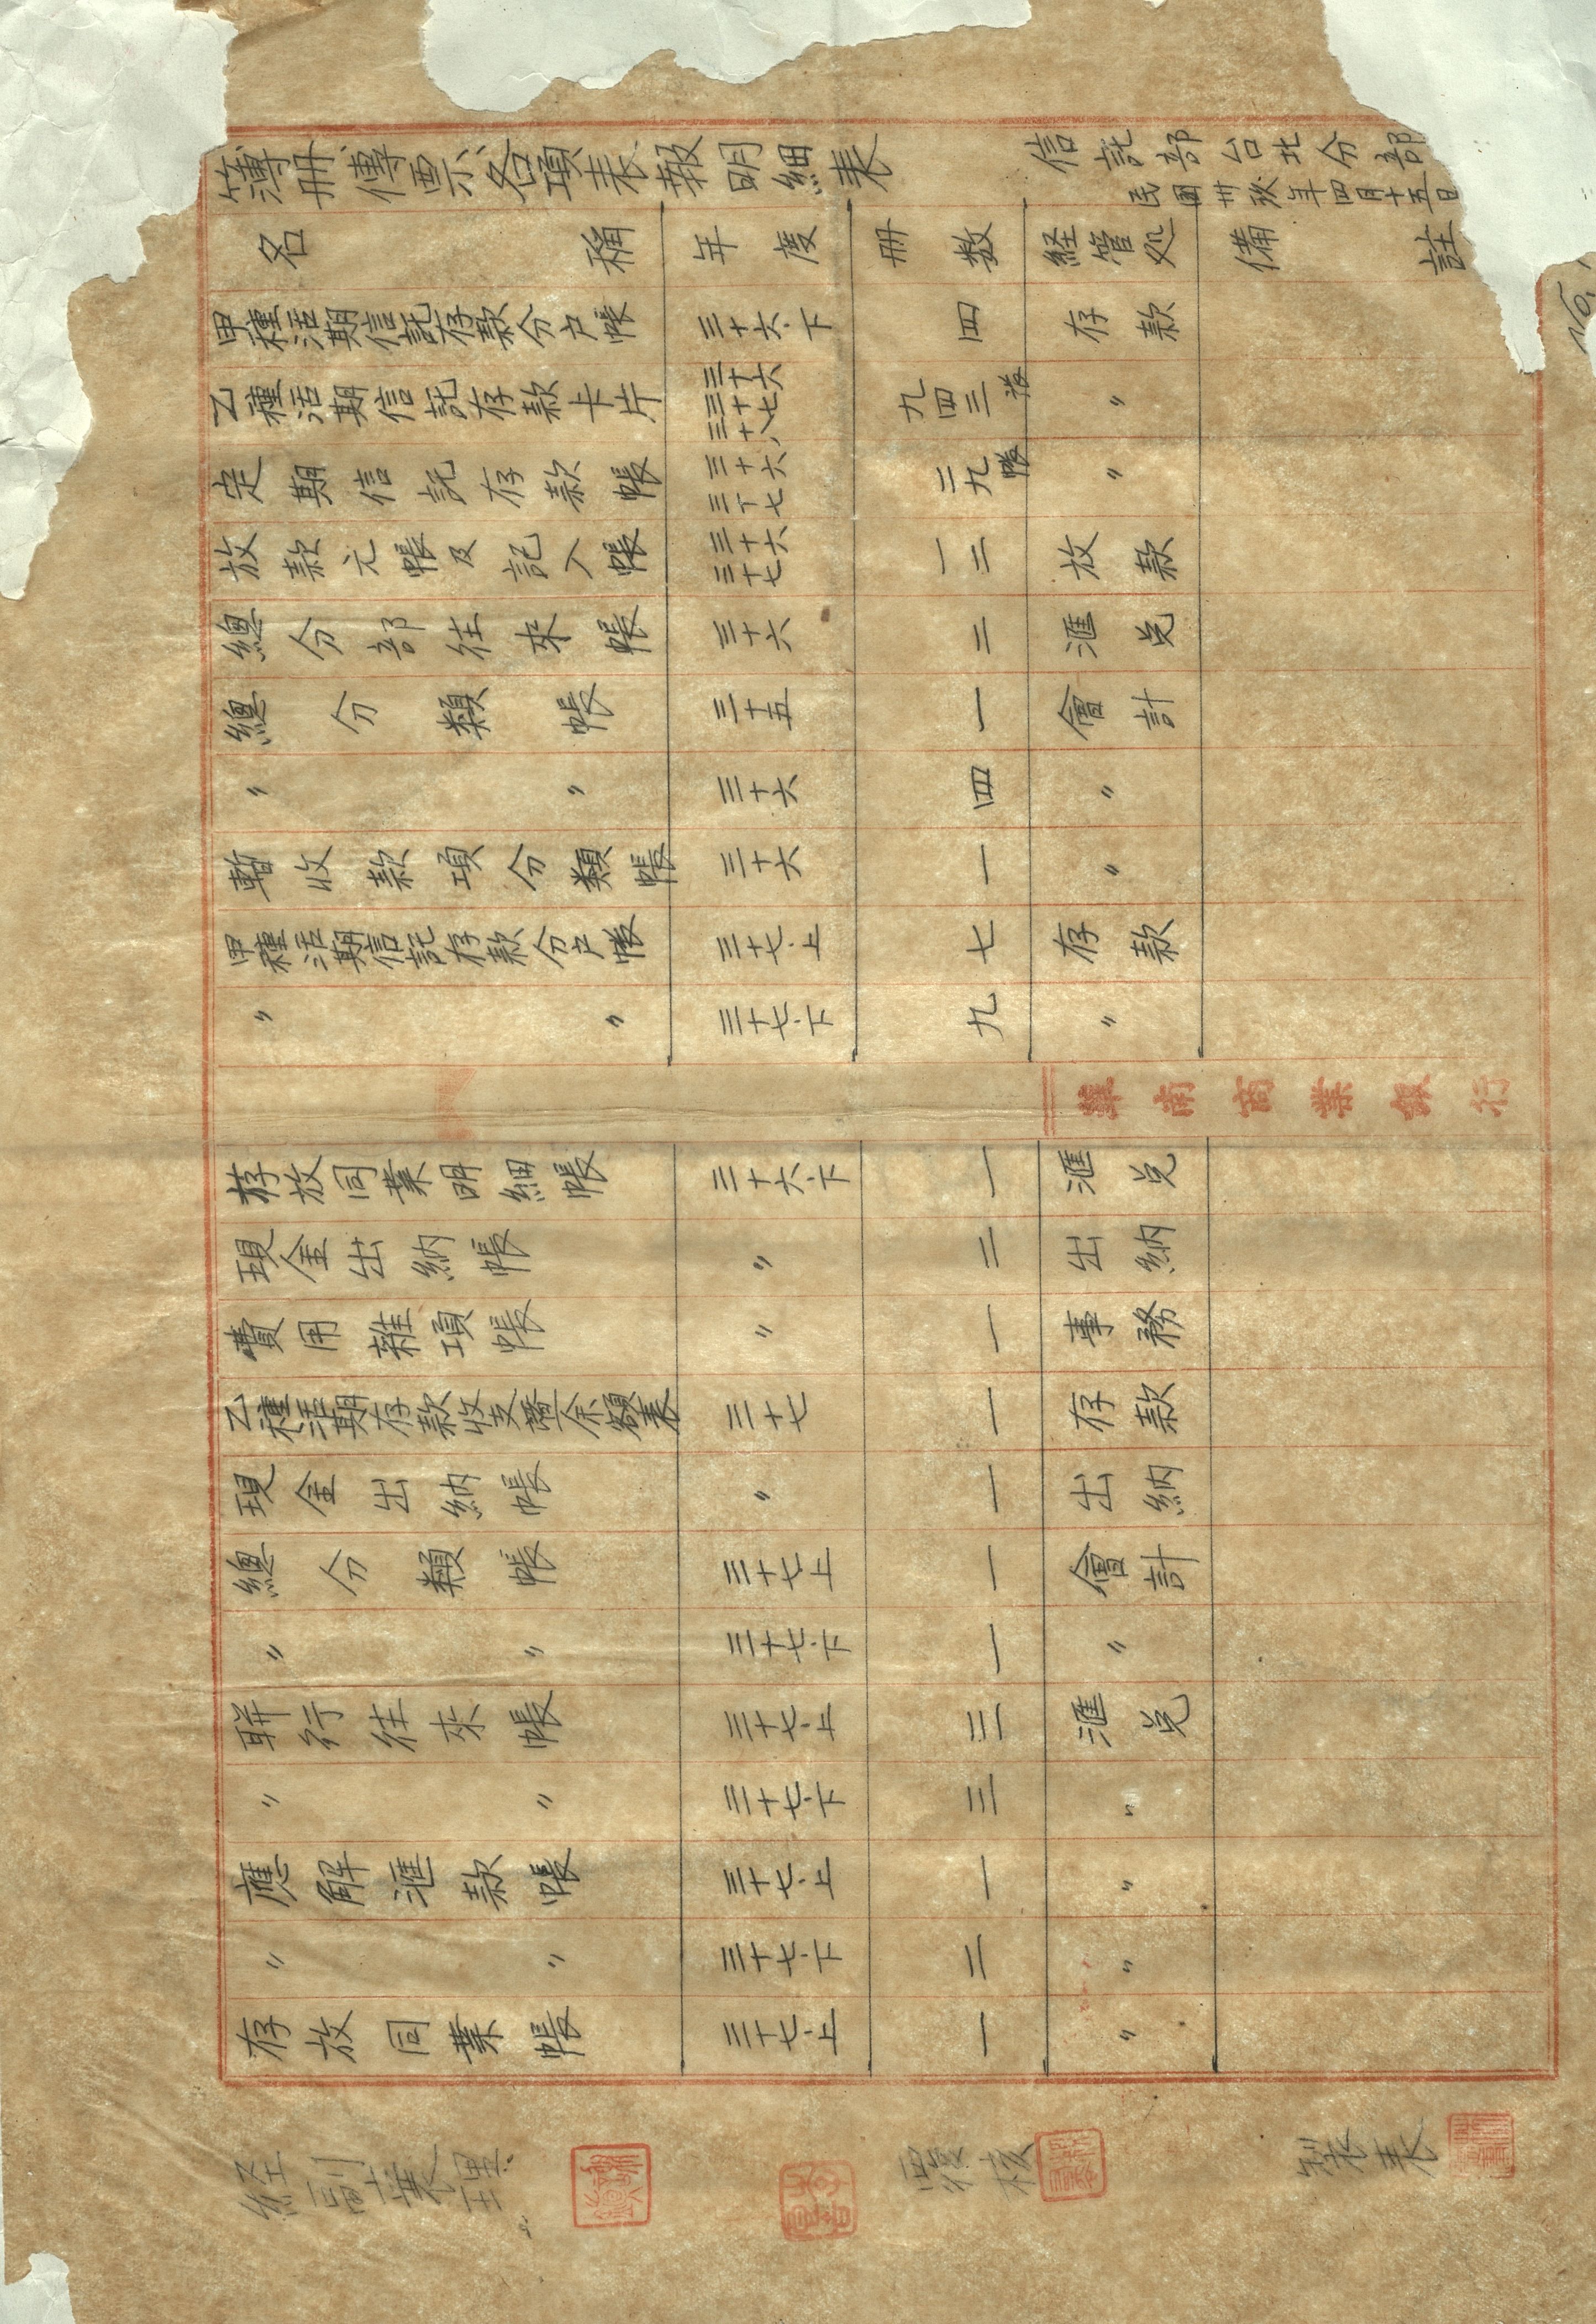 簿册傳票各項表報明細表
信託部台北分部
民國卅 年四月十五日
名稱 年度 册数 経管処 備註
甲種活期信託存款分户帳 三十六·下 四 存款
乙種活期信託存款卡片 三十六 三十七 三十八 九四三張 〃
定期信託存款帳 三十六 三十七 二九帳 〃
放款元帳及記入帳 三十六 三十七 一二 放款
總分部往來帳 三十六 二 滙兑
總分類帳 三十五 一 會計
〃 〃 三十六 四 〃
暫收款項分類帳 三十六 一 〃
甲種活期信託存款分户帳 三十七·上 七 存款
〃 〃 三十七·下 九 〃
華南商業銀行
存放同業明細帳 三十六·下 一 滙兑
現金出納帳 〃 二 出納
費用雜項帳 〃 一 事務
乙種活期存款收支 余額表 三十七 一 存款
現金出納帳 〃 一 出納
總分類帳 三十七上 一 會計
〃 〃 三十七·下 一 〃
聨行往來帳 三十七·上 三 滙兑
〃 〃 三十七·下 三 〃
應解滙款帳 三十七·上 一 〃
〃 〃 三十七·下 二 〃
存放同業帳 三十七·上 一 〃
経副襄理 覆核 製表